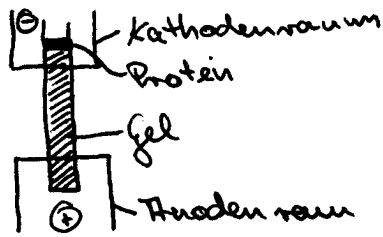 ⊖
Kathodenraum
Protein
Gel
Anodenraum
⊕